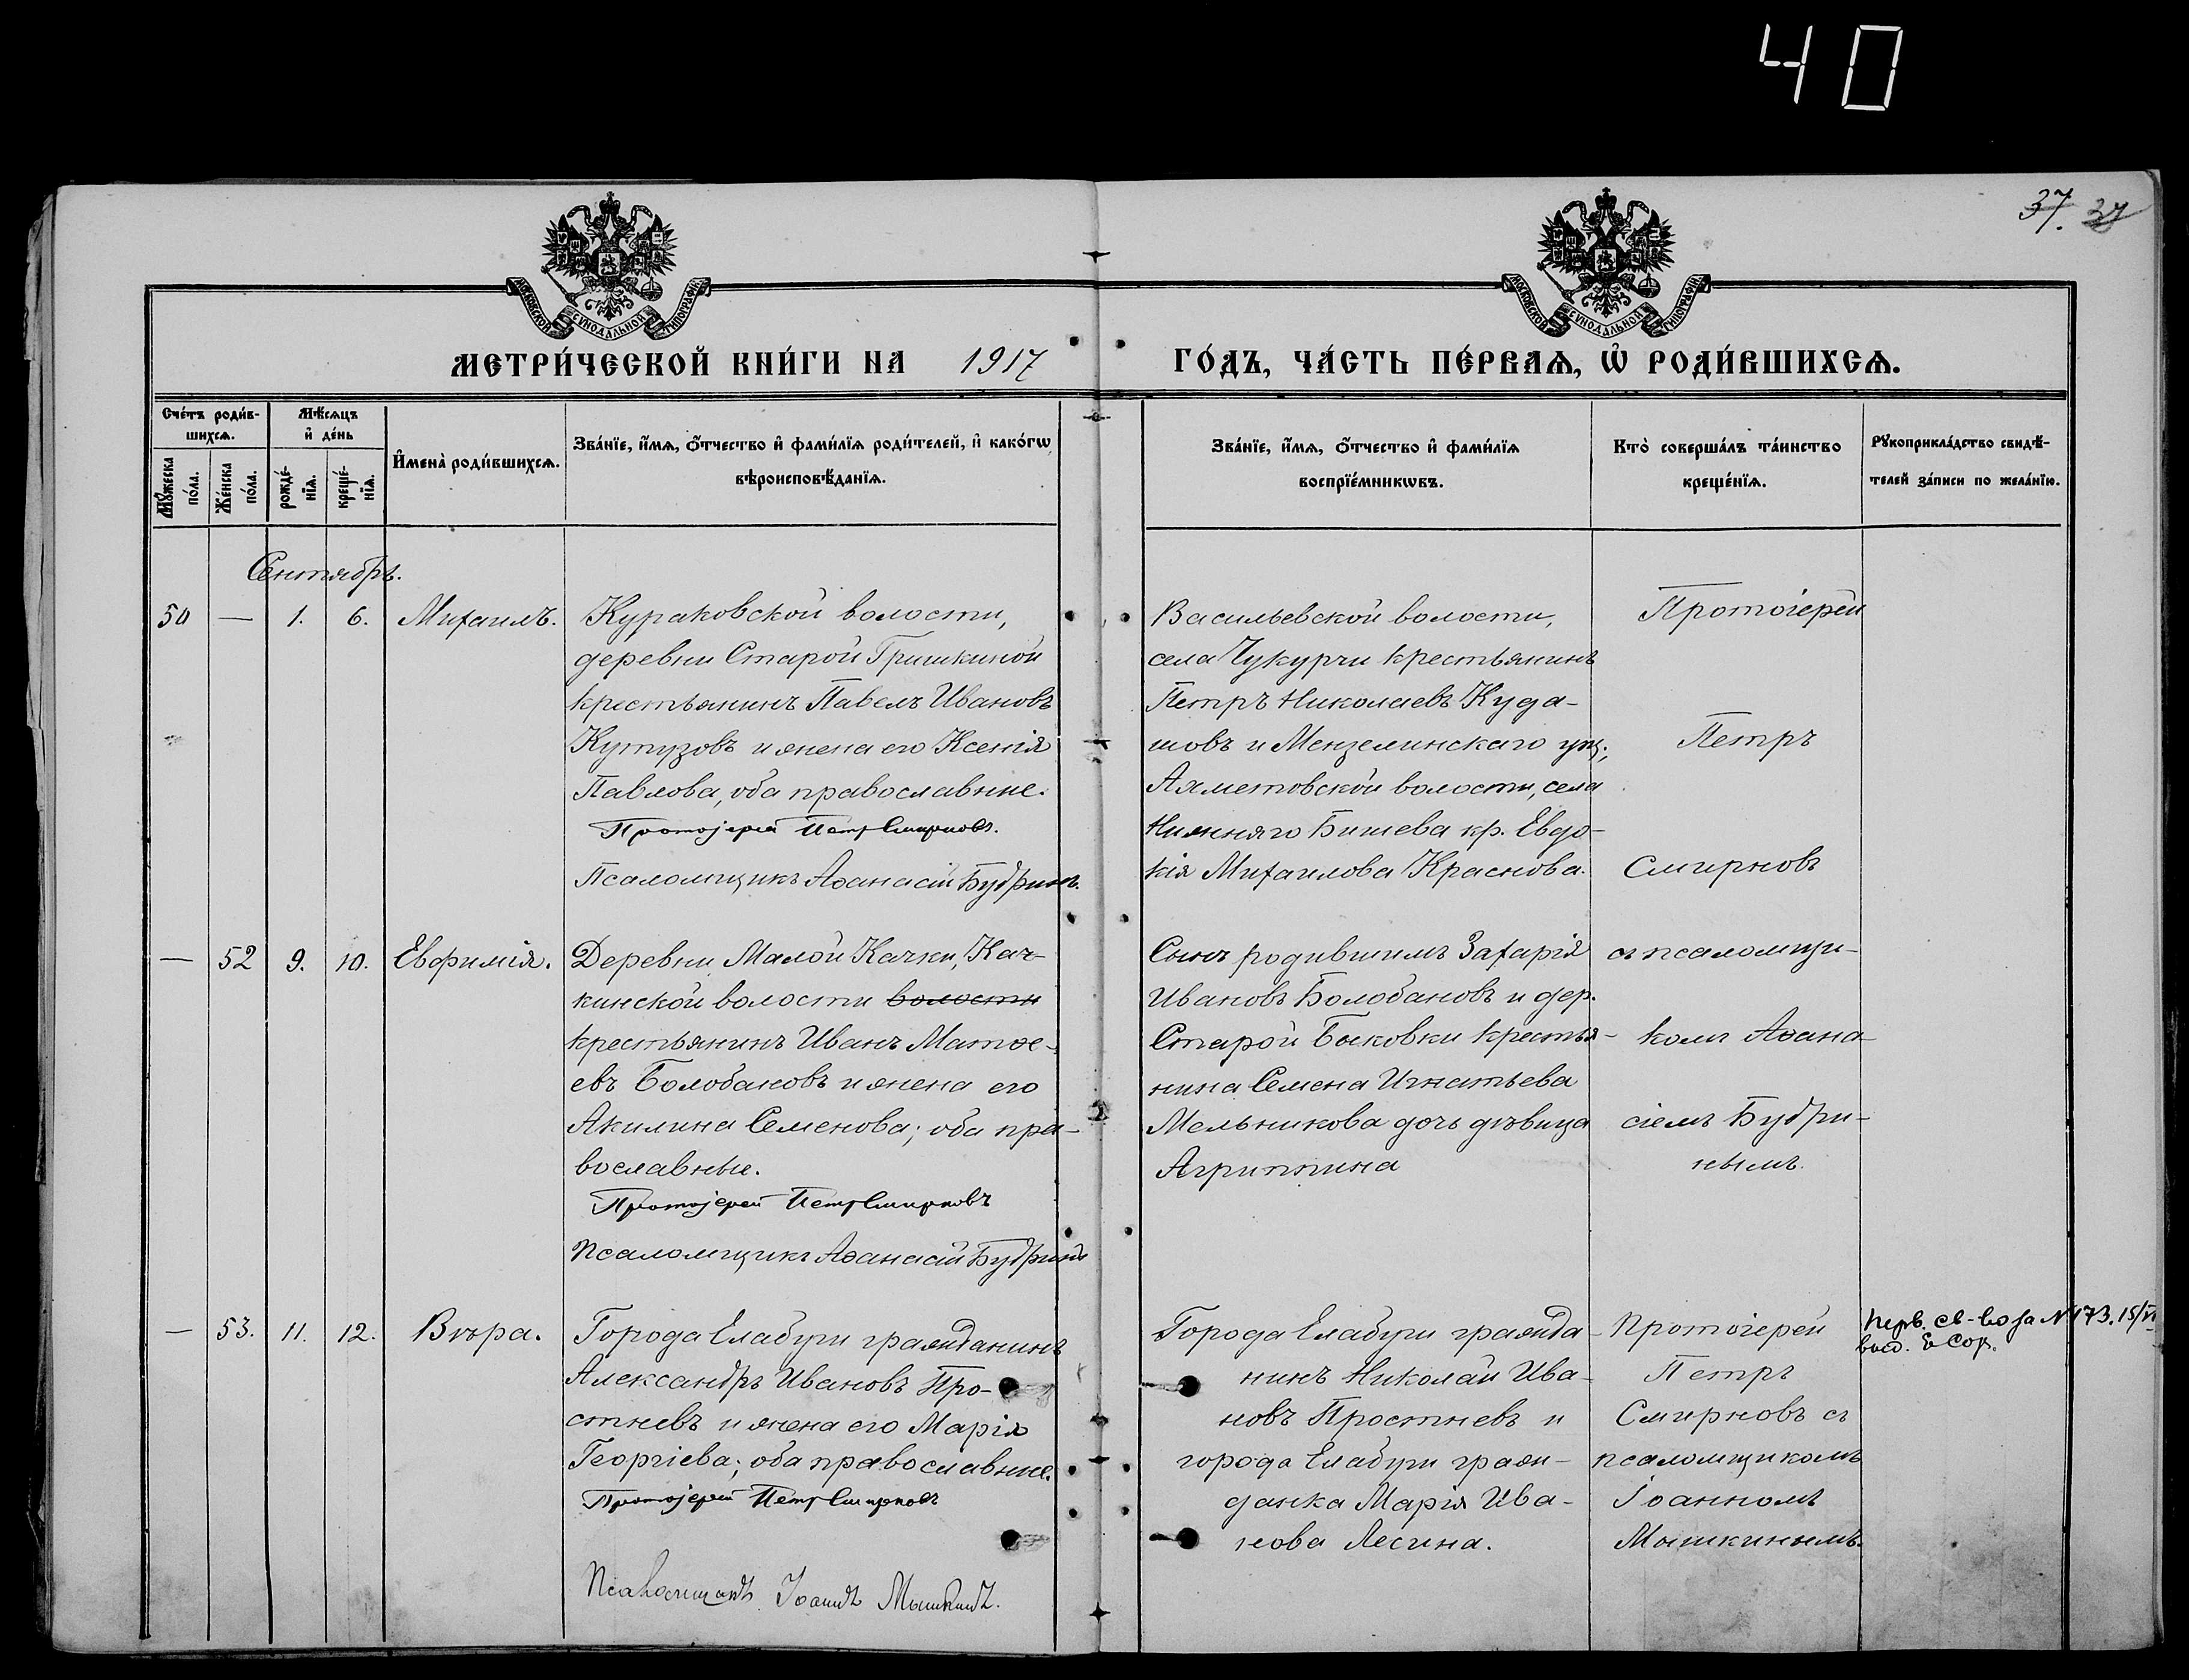 40
37. 37
МОСКОВСКОЙ СѴНОДАЛЬНОЙ ТИПОГРАФІИ
МОСКОВСКОЙ СѴНОДАЛЬНОЙ ТИПОГРАФІИ
МЕТРИ́ЧЕСКОЙ КНИ́ГИ НА 1917 ГО́ДЪ, ЧА́СТЬ ПЕ́РВАѦ, Ѡ҆ РОДИ́ВШИХСѦ.
Сче́тъ роди́в-
шихсѧ.
Мꙋ́жеска
по́ла.
Же́нска
по́ла.
Мѣ́сѧцъ
и҆ де́нь
рожде́-
нїѧ.
креще́-
нїѧ.
И҆мена̀ роди́вшихсѧ.
Зва́нїе, и҆́мѧ, ѻ҆́тчество и҆ фами́лїѧ роди́телей, и҆ како́гѡ
вѣроисповѣ́данїѧ.
Зва́нїе, и҆́мѧ, ѻ҆́тчество и҆ фами́лїѧ
воспрїе́мникѡвъ.
Кто̀ соверша́лъ та́инство
креще́нїѧ.
Рꙋкоприкла́дство свидѣ́-
телей за́писи по жела́нїю.
Сентябрь.
50 — 1. 6. Михаилъ.
Кураковской волости,
деревни Старой Гришкиной
крестьянинъ Павелъ Ивановъ
Кутузовъ и жена его Ксенія
Павлова, оба православные.
Протоjерей Петръ Смирновъ.
Псаломщикъ Аѳанасій Будринъ.
Васильевской волости,
села Чукурчи крестьянинъ
Петръ Николаевъ Куда-
шовъ и Мензелинскаго уѣз.,
Ахметовской волости, села
Нижняго Бишева кр. Евдо-
кія Михаилова Краснова.
Протоіерей
Петръ
Смирновъ
— 52 9. 10. Евфимія.
Деревни Малой Качки, Кач-
кинской волости волости
крестьянинъ Иванъ Матѳе-
евъ Болобановъ и жена его
Акилина Семенова; оба пра-
вославные.
Протоjерей Петръ Смирновъ
Псаломщикъ Аѳанасій Будринъ
Сынъ родившимъ Захарія
Ивановъ Болобановъ и дер.
Старой Быковки крестья-
нина Семена Игнатьева
Мельникова дочь дѣвица
Агриппина
съ псаломщи-
комъ Аѳана-
сіемъ Будри-
нымъ.
— 53. 11. 12. Вѣра.
Города Елабуги гражданинъ
Александръ Ивановъ Про-
стневъ и жена его Марія
Георгіева; оба православные.
Протоjерей Петръ Смирновъ
Псаломщикъ Іоаннъ Мышкинъ.
Города Елабуги гражда-
нинъ Николай Ива-
новъ Простневъ и
города Елабуги граж-
данка Марія Ива-
нова Лесина.
Протоіерей
Петръ
Смирновъ съ
псаломщикомъ
Іоанномъ
Мышкинымъ.
№ 173. 15/VI